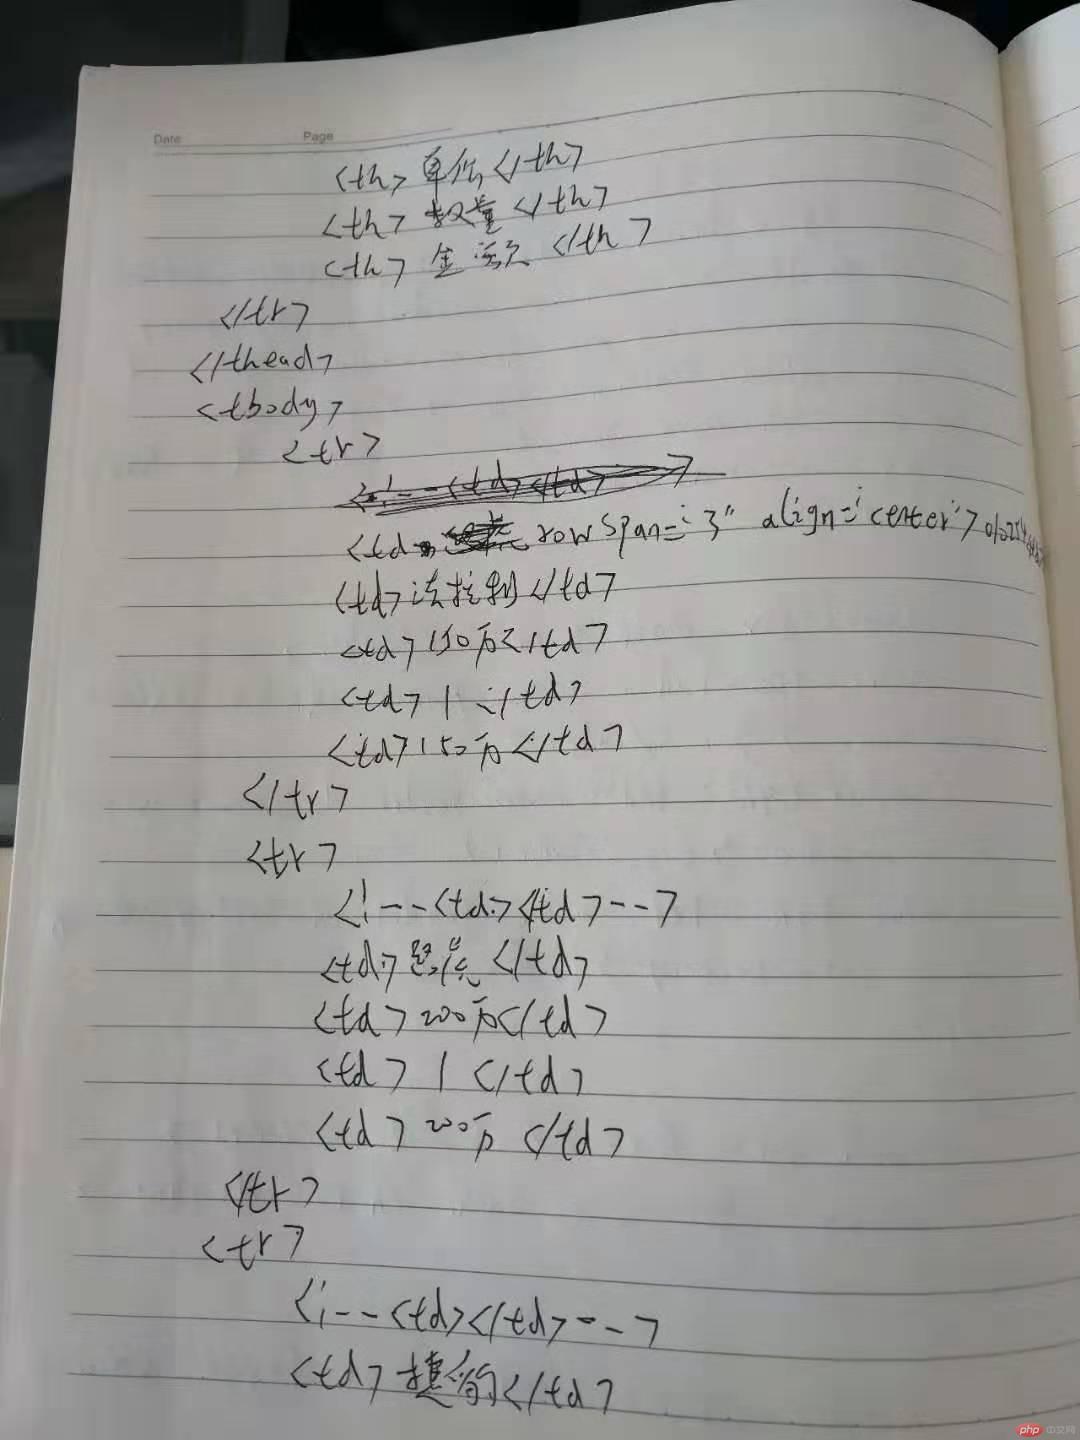 Date Page
<th>单价</th>
<th>数量</th>
<th>金额</th>
</tr>
</thead>
<tbody>
<tr>
<td rowspan="3" align="center">
<td>法拉利</td>
<td>150万</td>
<td>1</td>
<td>150万</td>
</tr>
<tr>
<!--<td></td>-->
<td></td>
<td>200万</td>
<td>1</td>
<td>200万</td>
</tr>
<tr>
<!--<td></td>-->
<td>捷豹</td>
php 中文网